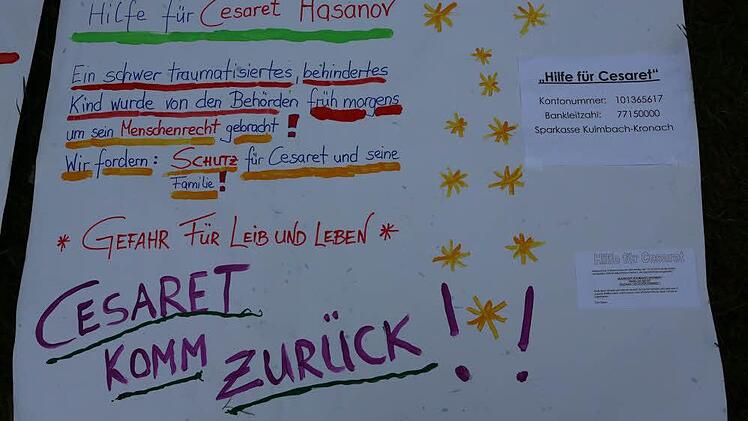 Hilfe für Cesaret Hasanov
Ein schwer traumatisiertes, behindertes
Kind wurde von den Behörden früh morgens
um sein Menschenrecht gebracht!
Wir fordern: SCHUTZ für Cesaret und seine
Familie!
* GEFAHR FÜR LEIB UND LEBEN *
CESARET
KOMM ZURÜCK!!
„Hilfe für Cesaret"
Kontonummer: 101365617
Bankleitzahl: 77150000
Sparkasse Kulmbach-Kronach
Hilfe für Cesaret